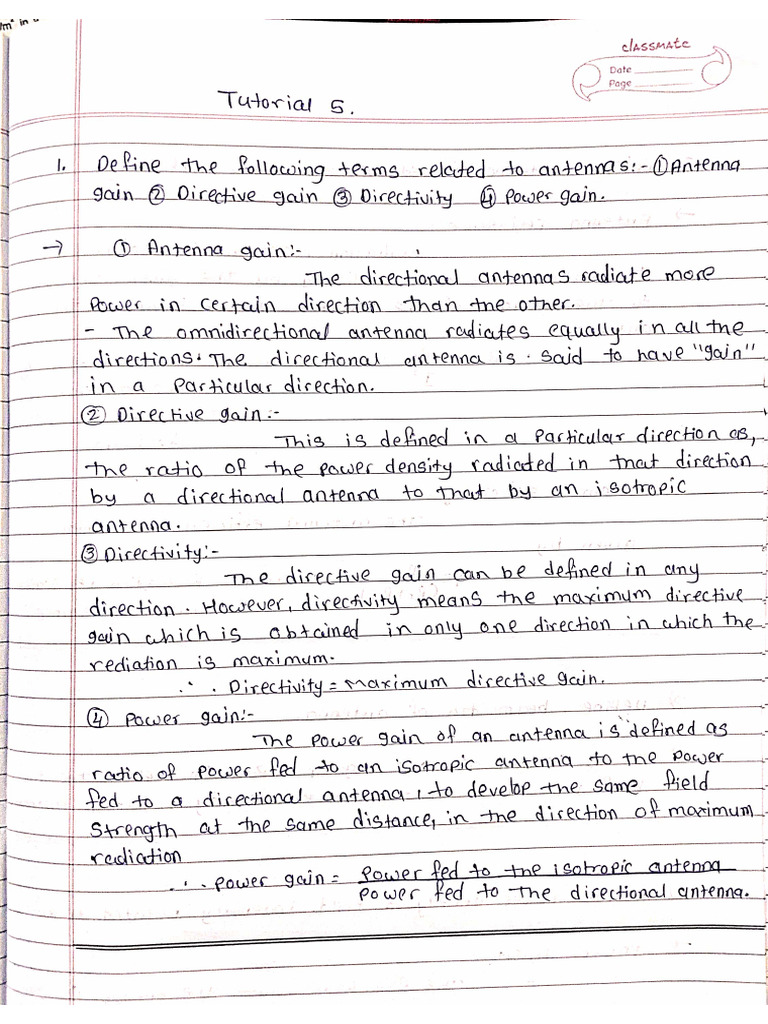 /m² in
classmate
Date
Page
Tutorial 5.
1. Define the following terms related to antennas:- ① Antenna
gain ② Directive gain ③ Directivity ④ Power gain.
→ ① Antenna gain:-
The directional antennas radiate more
Power in certain direction than the other.
- The omnidirectional antenna radiates equally in all the
directions. The directional antenna is said to have "gain"
in a Particular direction.
② Directive gain:-
This is defined in a Particular direction as,
the ratio of the power density radiated in that direction
by a directional antenna to that by an isotropic
antenna.
③ Directivity:-
The directive gain can be defined in any
direction. However, directivity means the maximum directive
gain which is obtained in only one direction in which the
rediation is maximum.
∴ Directivity = Maximum directive gain.
④ Power gain:-
The Power gain of an antenna is defined as
ratio of Power fed to an isotropic antenna to the Power
fed to a directional antenna, to develop the same field
Strength at the same distance, in the direction of maximum
radiation
∴ Power gain = Power fed to the isotropic antenna
Power fed to the directional antenna.